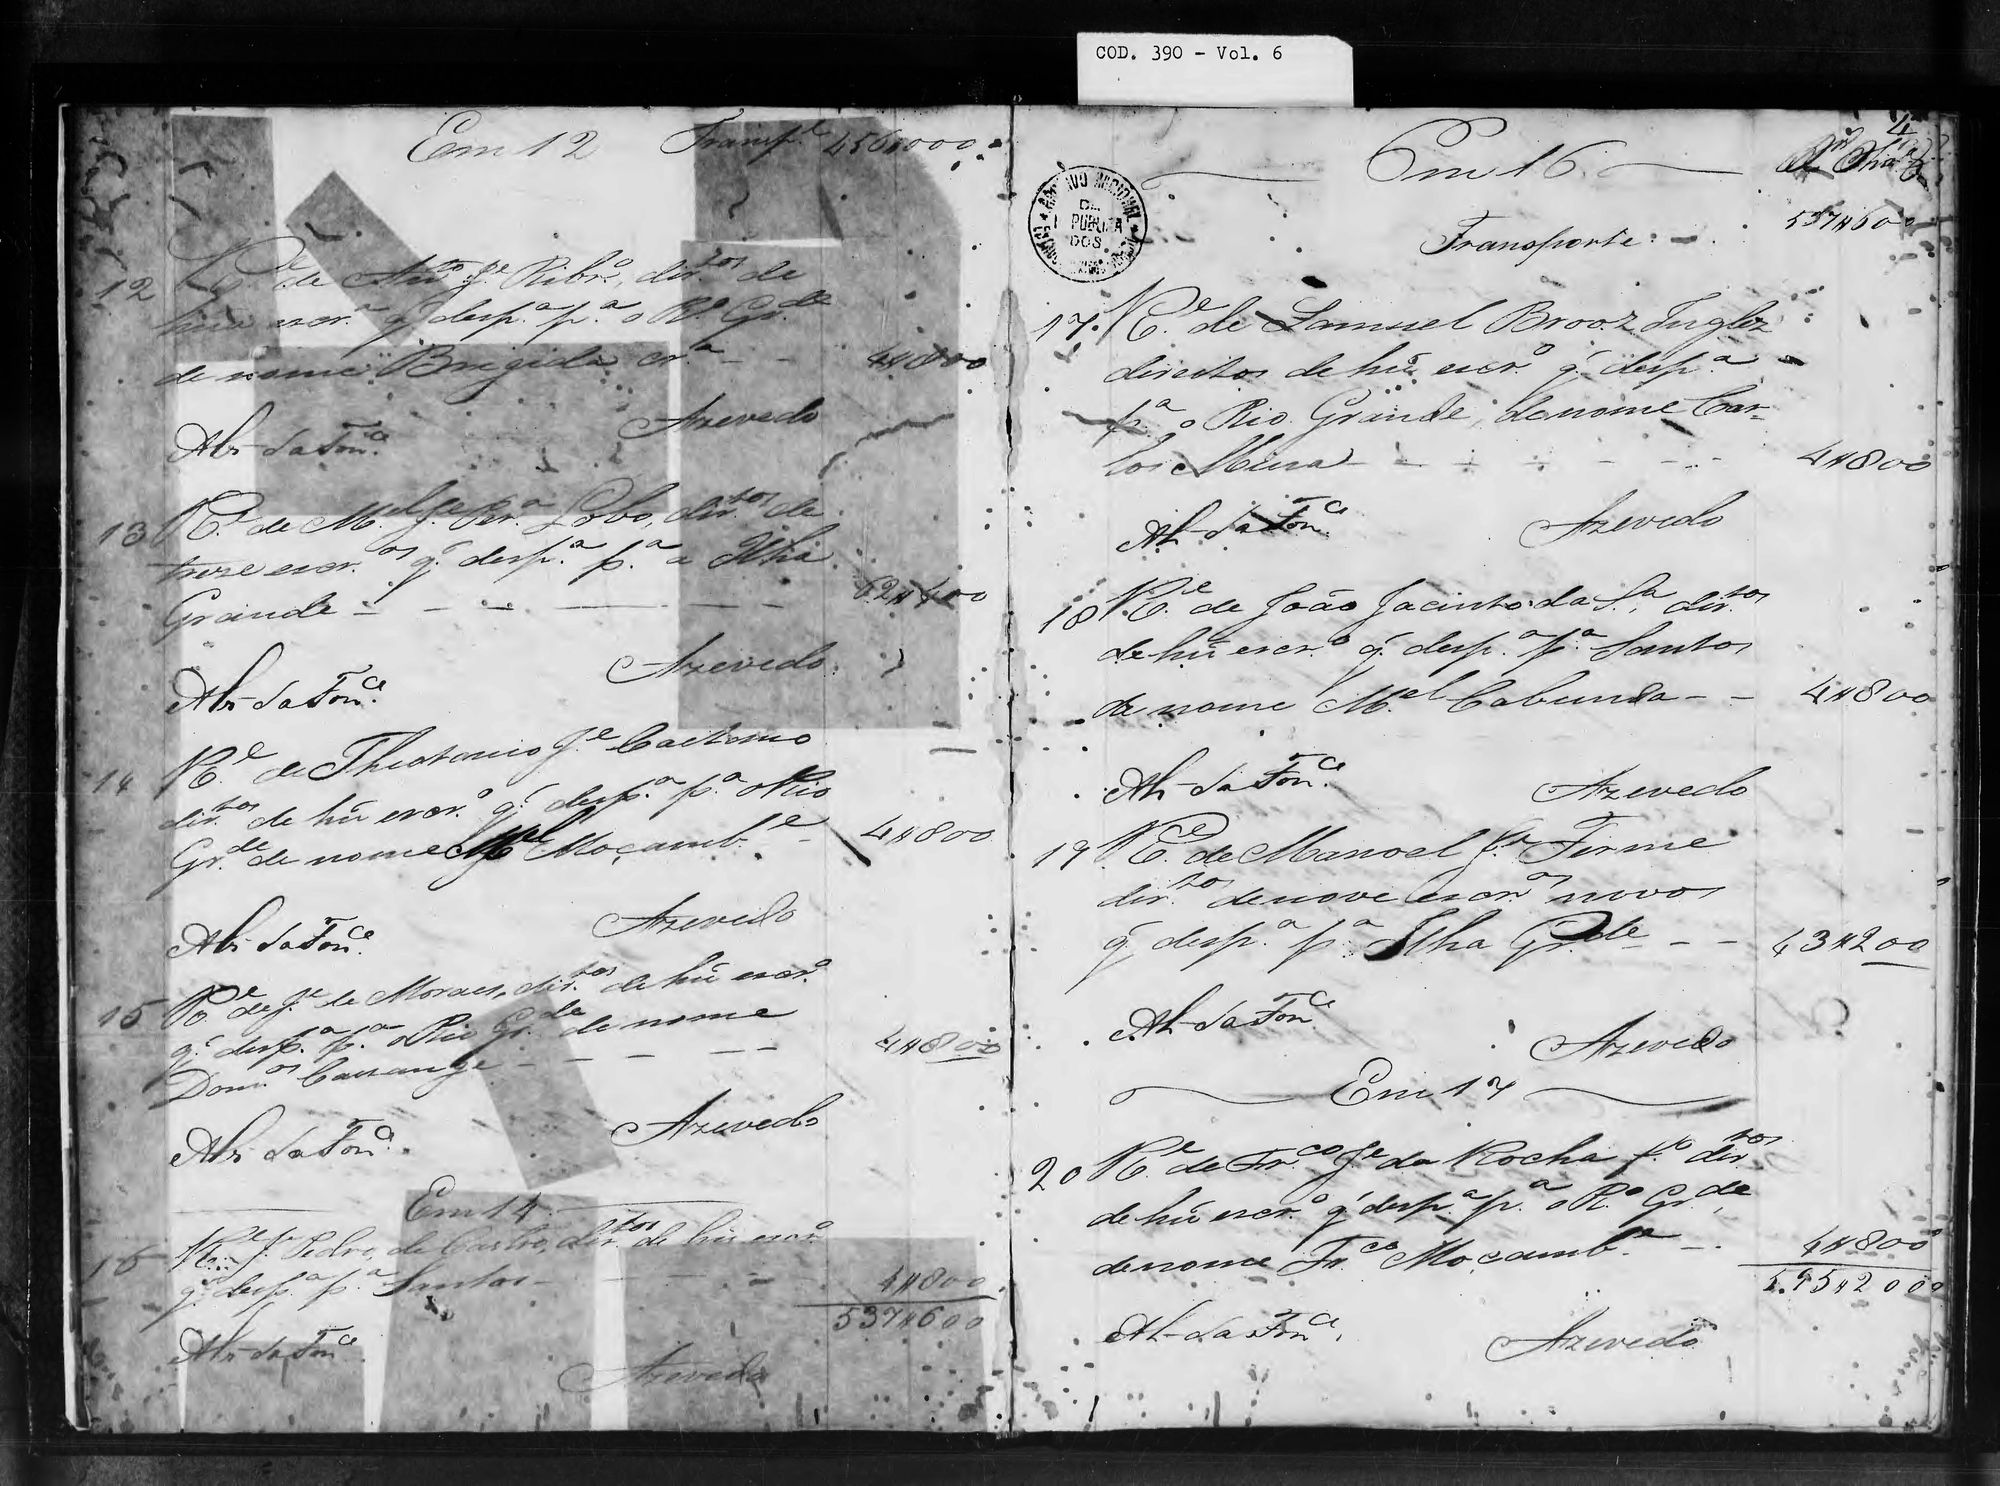 COD. 390 - Vol. 6
Em 12 Transp.e 456#000
12 R.e de Ant.o J.e Ribr.o, dir.tos de
hua escr.a q' desp.a p.a o R.o Gr.de
de nome Brigida cr.a - - 4#800
Ab- da Fon.ca Azevedo
13 R.e de M.el J.e Per.a Lobo, dir.tos de
treze escr.os q' desp.a p.a a Ilha
Grande - - - - 62#400
Ab- da Fon.ca Azevedo
14 R.e de Theotonio J.e Caetano
dir.tos de hũ escr.o q' desp.a p.a o Rio
Gr.de de nome M.el Moçamb.e - 4#800
Ab- da Fon.ca Azevedo
15 R.e de J.e de Moraes, dir.tos de hũ escr.o
q' desp.a p.a o Rio Gr.de de nome
Dom.os Cassange - - - - 4#800
Ab- da Fon.ca Azevedo
Em 14
16 R.e J.e Pedro de Castro, dir.tos de hũ escr.o
q' desp.a p.a Santos - - - 4#800
537#600
Ab- da Fon.ca
Azevedo
4
Em 16
Transporte 537#600
17 R.e de Samuel Brooz Inglez
direitos de hũ escr.o q' desp.a
p.a o Rio Grande, de nome Car-
los Mina - - - - 4#800
Ab- da Fon.ca Azevedo
18 R.e de João Jacinto da S.a, dir.tos
de hũ escr.o q' desp.a p.a Santos
de nome M.el Cabunda - - 4#800
Ab- da Fon.ca Azevedo
19 R.e de Manoel Firme
dir.tos de nove escr.os novos
q' desp.a p.a Ilha Gr.de - - 43#200
Ab- da Fon.ca
Azevedo
Em 17
20 R.e de Fr.co J.e da Rocha f.o dir.tos
de hũ escr.o q' desp.a p.a o R.o Gr.de,
de nome Fr.co Moçamb.e - 4#800
595#200
Ab- da Fon.ca,
Azevedo